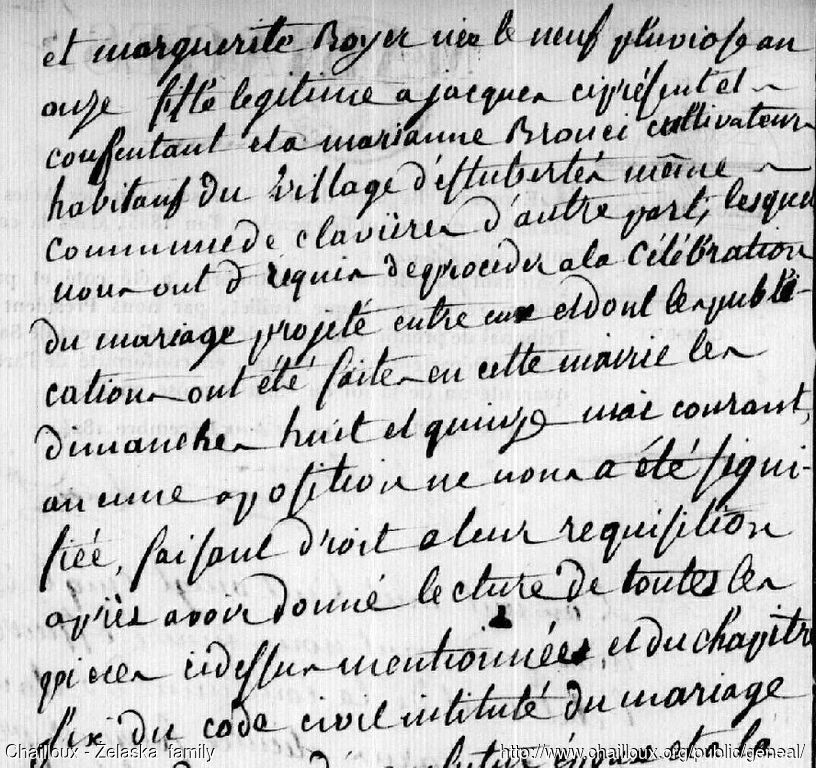 et marguerite Royer née le neuf pluviose an
onze fille legitime a jacques ci présent et
consentant et a marianne Brouci cultivateurs
habitans du village d'éstubertés même
commune de clavières d'autre part, lesquels
nous ont réquis de proceder a la célébration
du mariage projeté entre eux et dont les publi-
cations ont été faites en cette mairie les
dimanches huit et quinze mai courant,
aucune oposition ne nous a été signi-
fiée, faisant droit a leur requisition
après avoir donné lecture de toutes les
pieces cidessus mentionnées et du chapitre
six du code civil intitulé du mariage
futur époux et la
Chailloux - Zelaska family
http://www.chailloux.org/public/geneal/